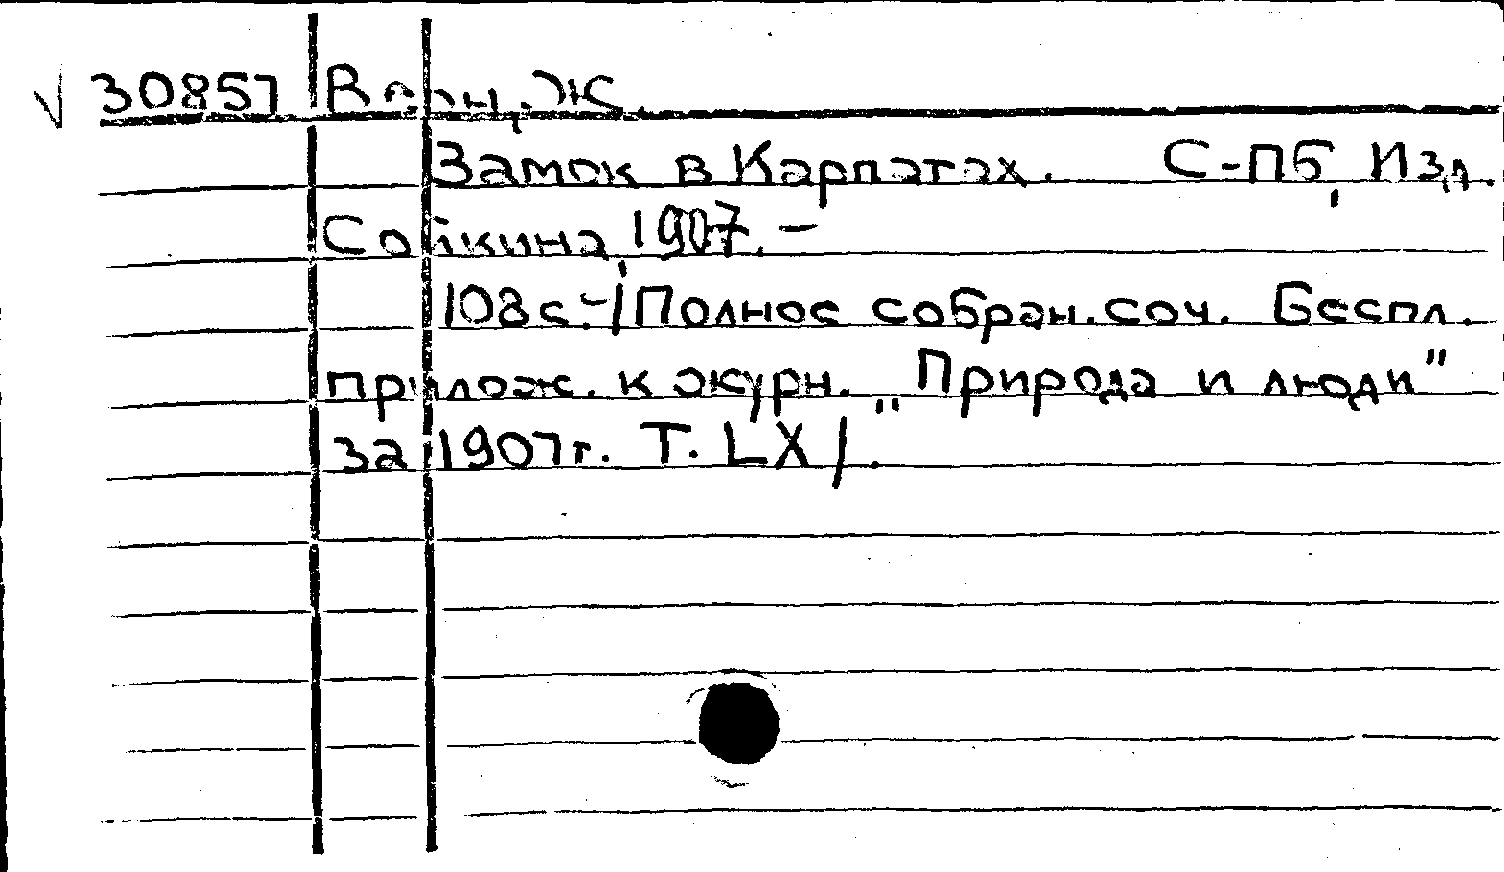 √ 30857 Верн, Ж.
Замок в Карпатах. С-Пб, Изд.
Сойкина, 1907. –
108 с. – /Полное собран. соч. Беспл.
прилож. к журн. „Природа и люди"
за 1907 г. Т. LX/.